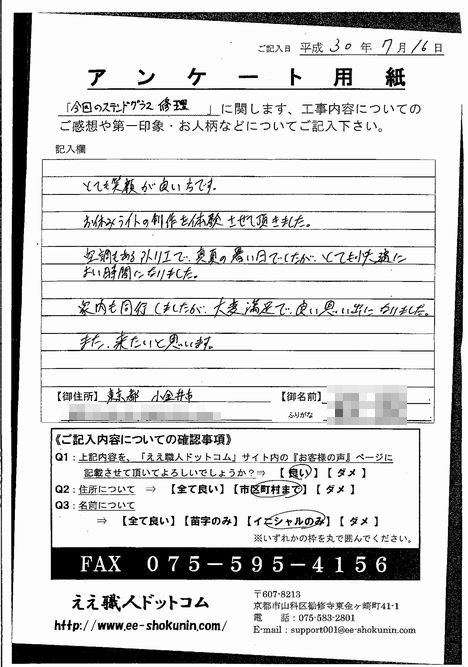 ご記入日 平成 30 年 7月16日
アンケート用紙
「今回のステンドグラス 修理 」に関します、工事内容についての
ご感想や第一印象・お人柄などについてご記入下さい。
記入欄
とても笑顔が良い方です。
お休みライトの制作を体験させて頂きました。
空調もあるアトリエで、真夏の暑い日でしたが、とても快適に
よい時間になりました。
家内も同行しましたが、大変満足で、良い思い出になりました。
また、来たいと思います。
【御住所】東京都 小金井市
【御名前】
ふりがな
《ご記入内容についての確認事項》
Q1：上記内容を、「ええ職人ドットコム」サイト内の『お客様の声』ページに
記載させて頂いてよろしいでしょうか?⇒ 【 良い 】 【 ダメ 】
Q2：住所について ⇒ 【全て良い】【市区町村まで】【 ダメ 】
Q3：名前について
⇒ 【全て良い】【苗字のみ】【イニシャルのみ】【 ダメ 】
※いずれかの枠を丸で囲んでください。
FAX 075-595-4156
ええ職人ドットコム
http://www.ee-shokunin.com/
〒607-8213
京都市山科区勧修寺東金ヶ崎町41-1
電 話：075-583-2801
E-mail：support001@ee-shokunin.com